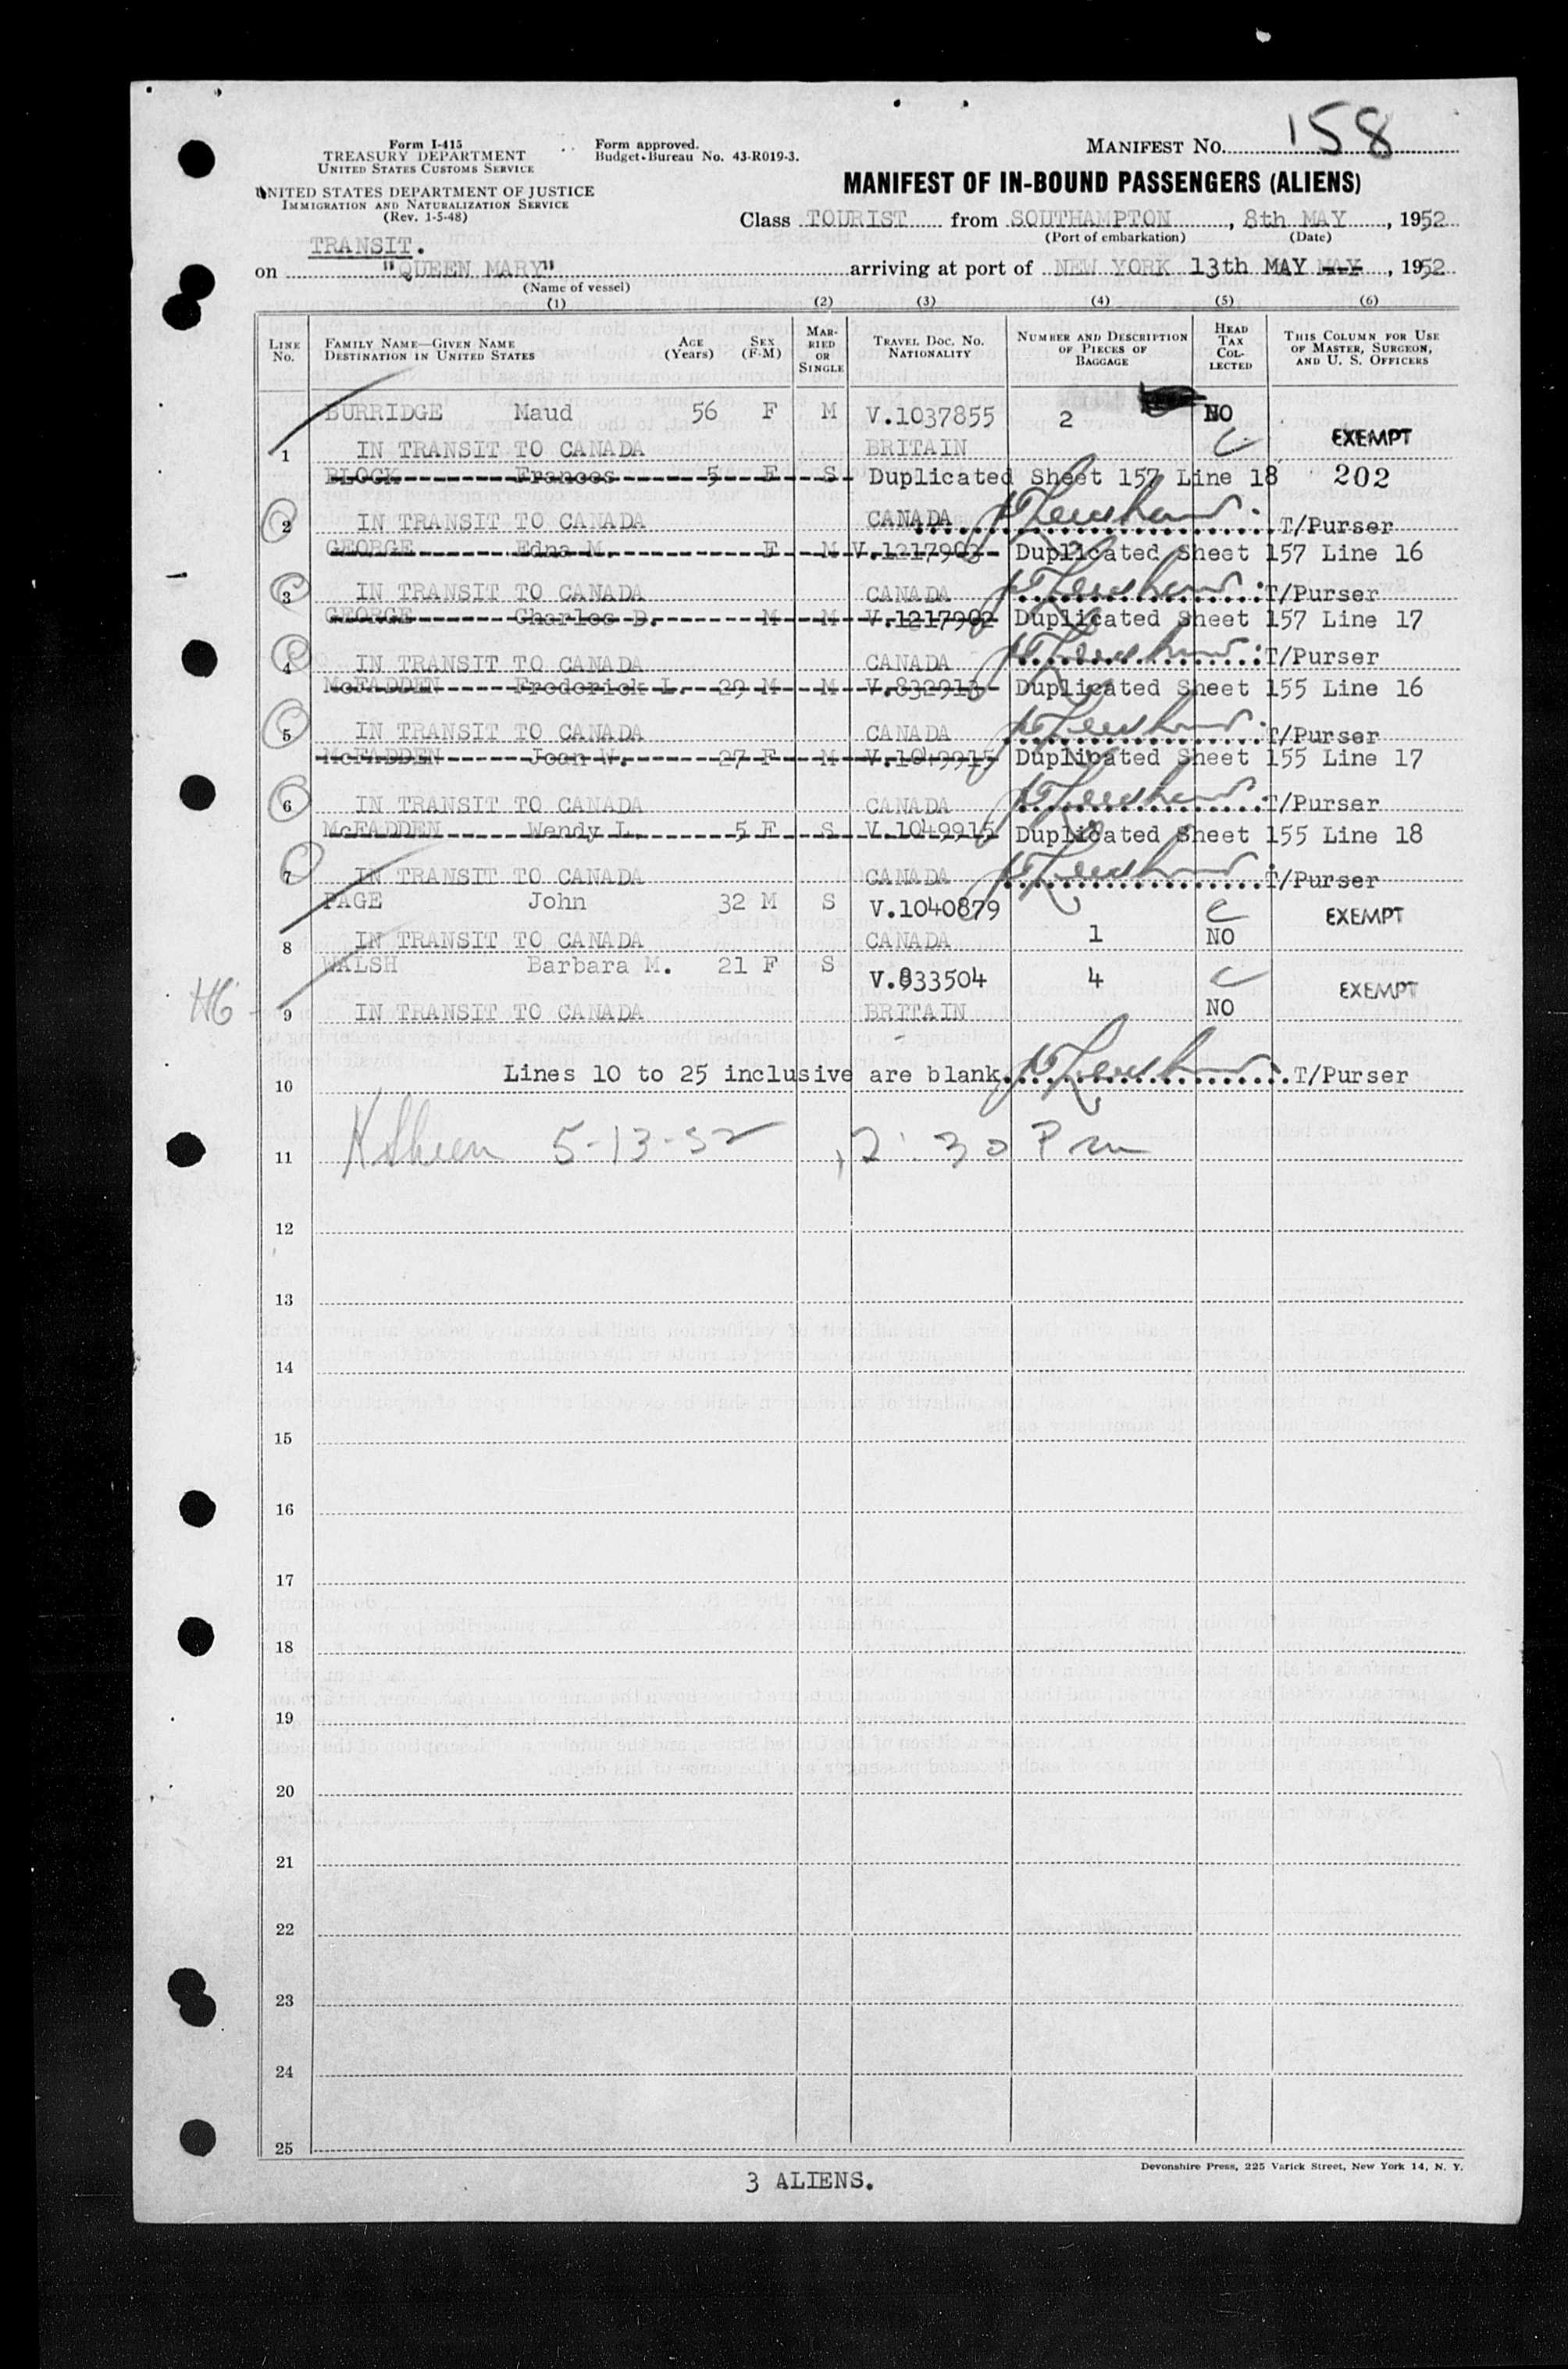 Form I-415
TREASURY DEPARTMENT
UNITED STATES CUSTOMS SERVICE
Form approved.
Budget Bureau No. 43-R019-3.
MANIFEST NO. 158
UNITED STATES DEPARTMENT OF JUSTICE
IMMIGRATION AND NATURALIZATION SERVICE
(Rev. 1-5-48)
MANIFEST OF IN-BOUND PASSENGERS (ALIENS)
Class TOURIST from SOUTHAMPTON, 8th MAY, 1952
(Port of embarkation) (Date)
TRANSIT.
on "QUEEN MARY" arriving at port of NEW YORK 13th MAY MAY, 1952
(Name of vessel)
(1) (2) (3) (4) (5) (6)
LINE No. FAMILY NAME—GIVEN NAME DESTINATION IN UNITED STATES AGE (Years) SEX (F-M) MARRIED OR SINGLE TRAVEL DOC. NO. NATIONALITY NUMBER AND DESCRIPTION OF PIECES OF BAGGAGE HEAD TAX COLLECTED THIS COLUMN FOR USE OF MASTER, SURGEON, AND U. S. OFFICERS
BURRIDGE Maud 56 F M V.1037855 2 NO
1 IN TRANSIT TO CANADA BRITAIN EXEMPT
BLOCK Frances 5 F S Duplicated Sheet 157 Line 18 202
2 IN TRANSIT TO CANADA CANADA T/Purser
GEORGE Edna M. F M V.1217903 Duplicated Sheet 157 Line 16
3 IN TRANSIT TO CANADA CANADA T/Purser
GEORGE Charles D. M M V.1217902 Duplicated Sheet 157 Line 17
4 IN TRANSIT TO CANADA CANADA T/Purser
McFADDEN Frederick L. 29 M M V.832913 Duplicated Sheet 155 Line 16
5 IN TRANSIT TO CANADA CANADA T/Purser
McFADDEN Joan W. 27 F M V.1049915 Duplicated Sheet 155 Line 17
6 IN TRANSIT TO CANADA CANADA T/Purser
McFADDEN Wendy L. 5 F S V.1049915 Duplicated Sheet 155 Line 18
7 IN TRANSIT TO CANADA CANADA T/Purser
PAGE John 32 M S V.1040879 EXEMPT
8 IN TRANSIT TO CANADA CANADA 1 NO
WALSH Barbara M. 21 F S V.833504 4 EXEMPT
9 IN TRANSIT TO CANADA BRITAIN NO
10 Lines 10 to 25 inclusive are blank. T/Purser
11 5-13-52 12:30 Pm
12
13
14
15
16
17
18
19
20
21
22
23
24
25
Devonshire Press, 225 Varick Street, New York 14, N. Y.
3 ALIENS.